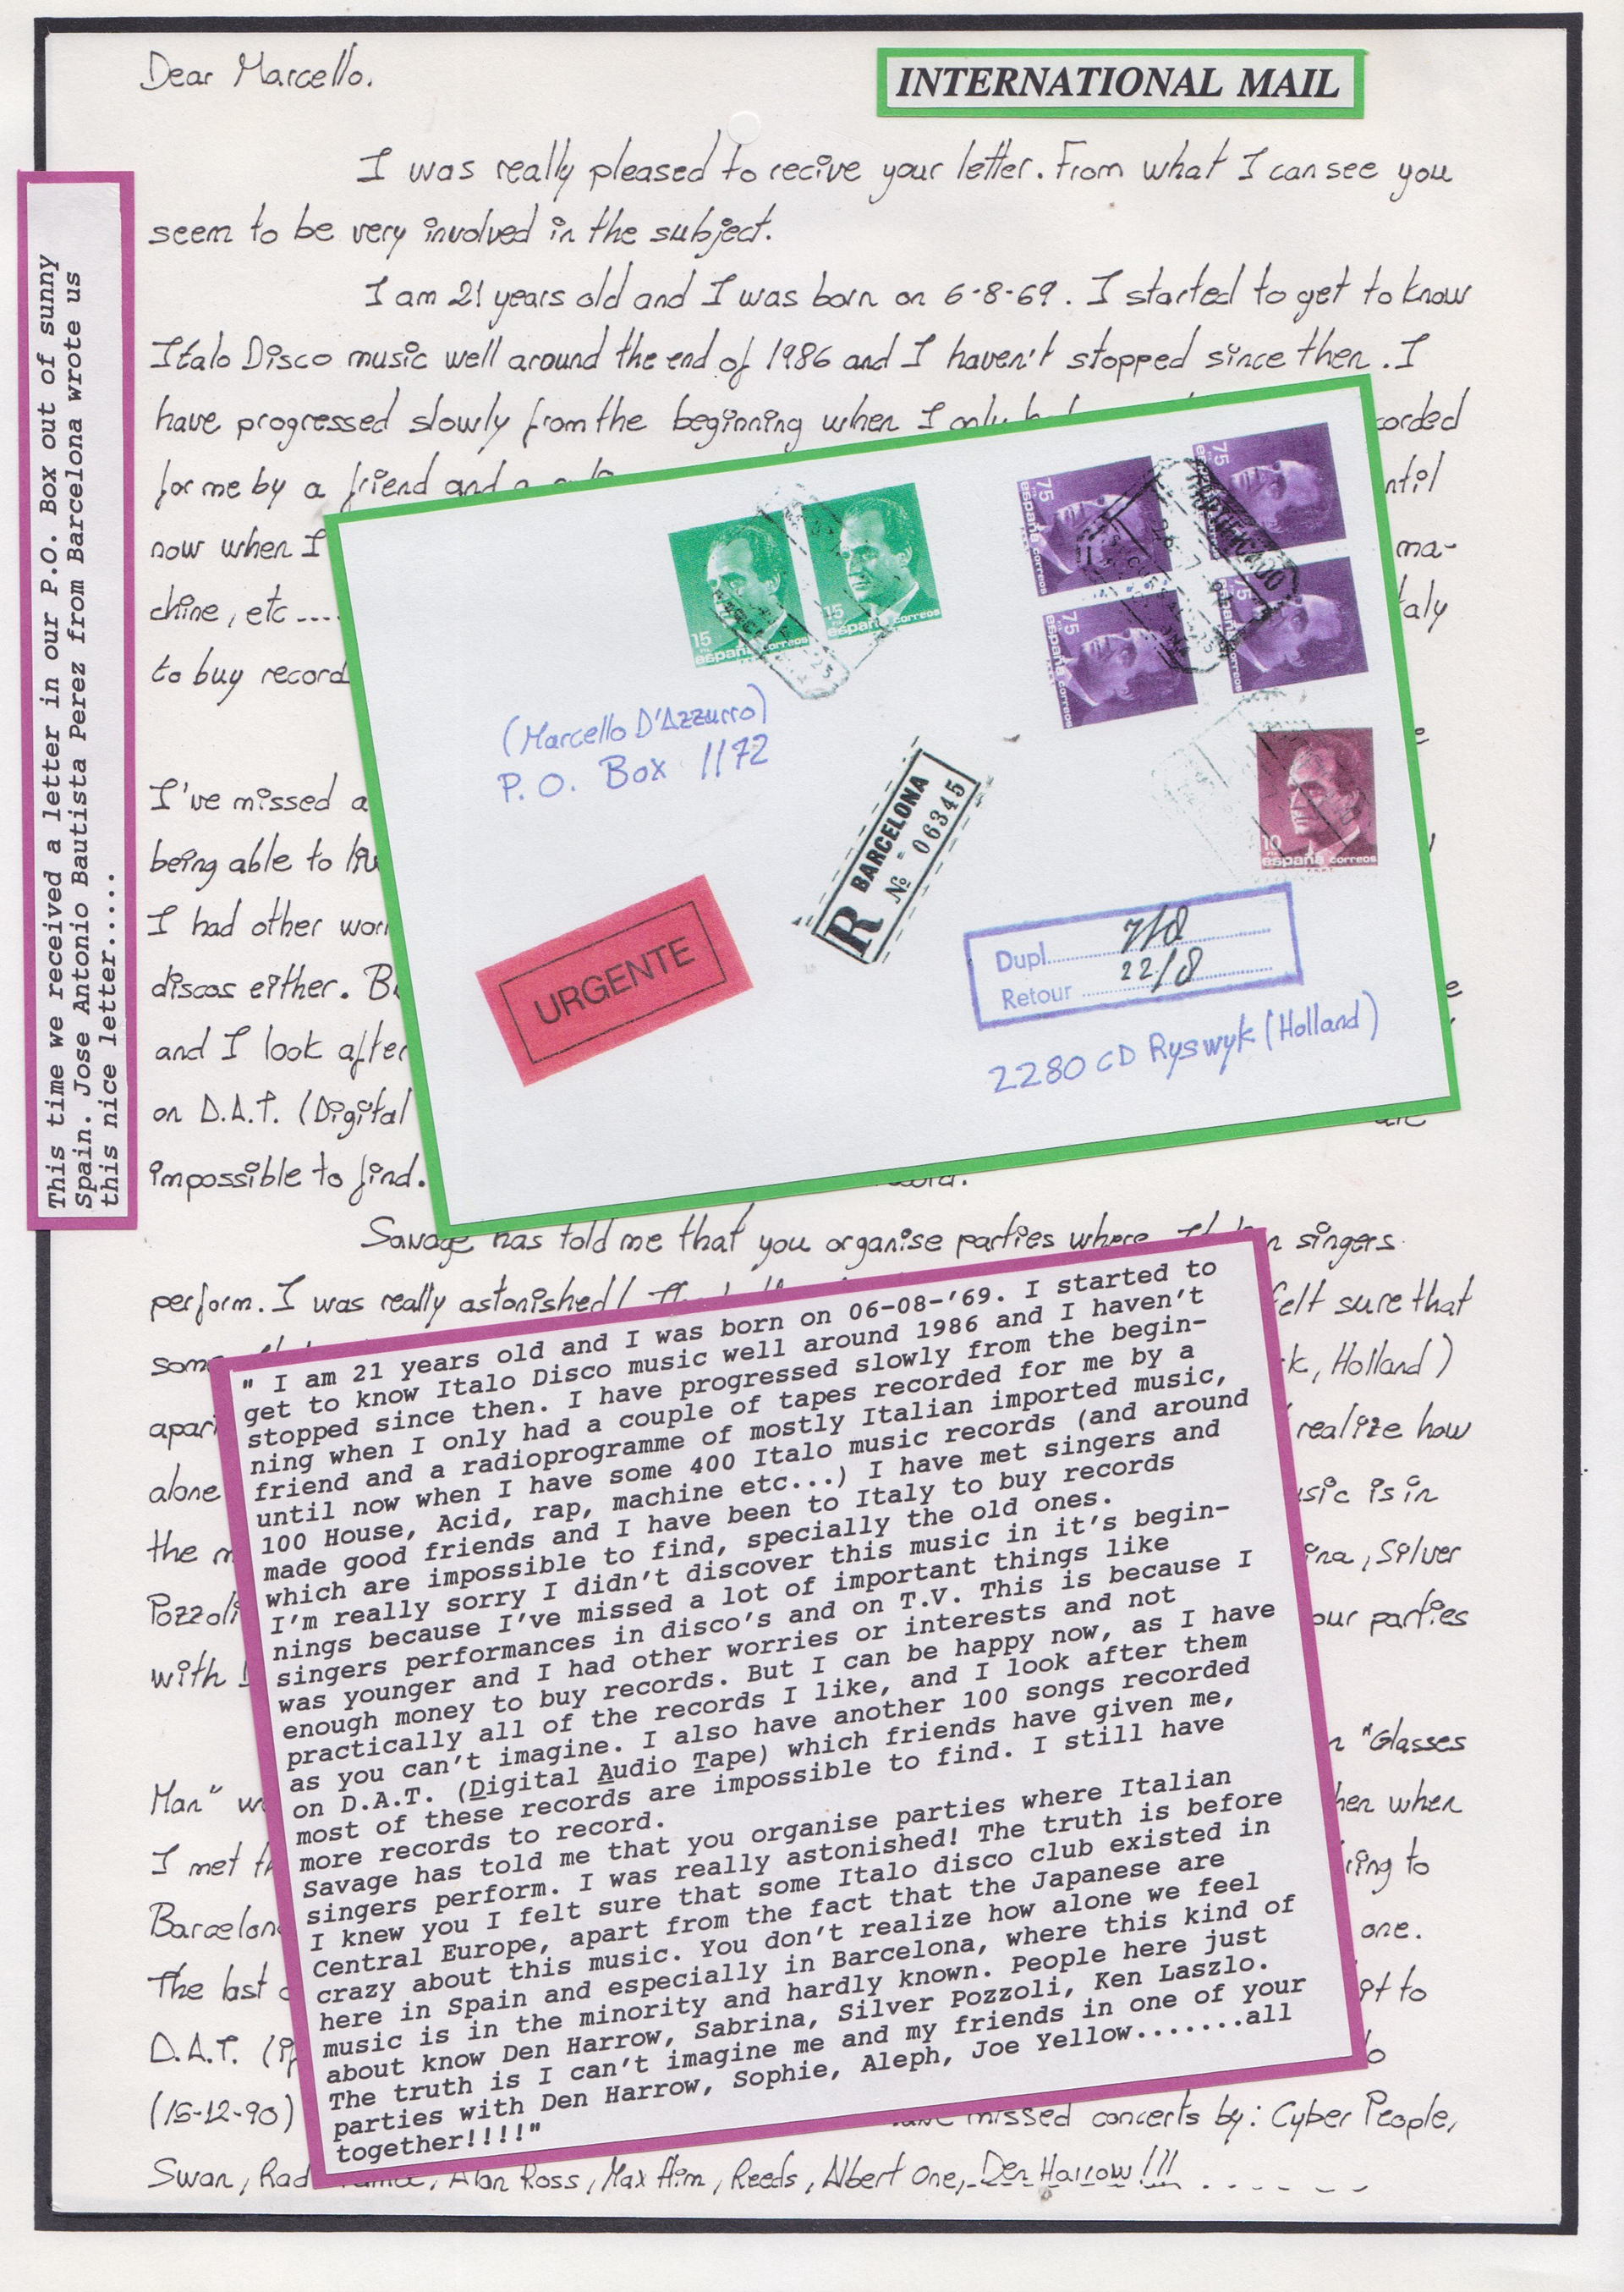 Dear Marcello.
INTERNATIONAL MAIL
I was really pleased to recive your letter. From what I can see you
seem to be very involved in the subject.
I am 21 years old and I was born on 6-8-69. I started to get to know
Italo Disco music well around the end of 1986 and I haven't stopped since then. I
have progressed slowly from the beginning when I only
for me by a friend and a
now when I ma-
chine, etc....
to buy record
I've missed a
being able to
I had other
discos either.
and I look after
on D.A.T. (Digital
impossible to find.
Savage has told me that you organise parties where singers
perform. I was really astonished! felt sure that
some , Holland)
apart realize how
alone music is in
the , Silver
Pozzoli our parties
with
"Glasses
Man" when
I met to
Barcelona one.
The last to
D.A.T.
(15-12-90) missed concerts by: Cyber People,
Swan, Alan Ross, Max Him, Reeds, Albert One, Den Harrow!!!
This time we received a letter in our P.O. Box out of sunny
Spain. Jose Antonio Bautista Perez from Barcelona wrote us
this nice letter.....
15 españa correos
15 españa correos
75 españa correos
75 españa correos
75 españa correos
75 españa correos
10 españa correos
(Marcello D'Azzurro)
P.O. Box 1172
R BARCELONA
Nº 06345
URGENTE
Dupl. 7/8
Retour 22/8
2280 CD Ryswyk (Holland)
" I am 21 years old and I was born on 06-08-'69. I started to
get to know Italo Disco music well around 1986 and I haven't
stopped since then. I have progressed slowly from the begin-
ning when I only had a couple of tapes recorded for me by a
friend and a radioprogramme of mostly Italian imported music,
until now when I have some 400 Italo music records (and around
100 House, Acid, rap, machine etc...) I have met singers and
made good friends and I have been to Italy to buy records
which are impossible to find, specially the old ones.
I'm really sorry I didn't discover this music in it's begin-
nings because I've missed a lot of important things like
singers performances in disco's and on T.V. This is because I
was younger and I had other worries or interests and not
enough money to buy records. But I can be happy now, as I have
practically all of the records I like, and I look after them
as you can't imagine. I also have another 100 songs recorded
on D.A.T. (Digital Audio Tape) which friends have given me,
most of these records are impossible to find. I still have
more records to record.
Savage has told me that you organise parties where Italian
singers perform. I was really astonished! The truth is before
I knew you I felt sure that some Italo disco club existed in
Central Europe, apart from the fact that the Japanese are
crazy about this music. You don't realize how alone we feel
here in Spain and especially in Barcelona, where this kind of
music is in the minority and hardly known. People here just
about know Den Harrow, Sabrina, Silver Pozzoli, Ken Laszlo.
The truth is I can't imagine me and my friends in one of your
parties with Den Harrow, Sophie, Aleph, Joe Yellow.......all
together!!!!"